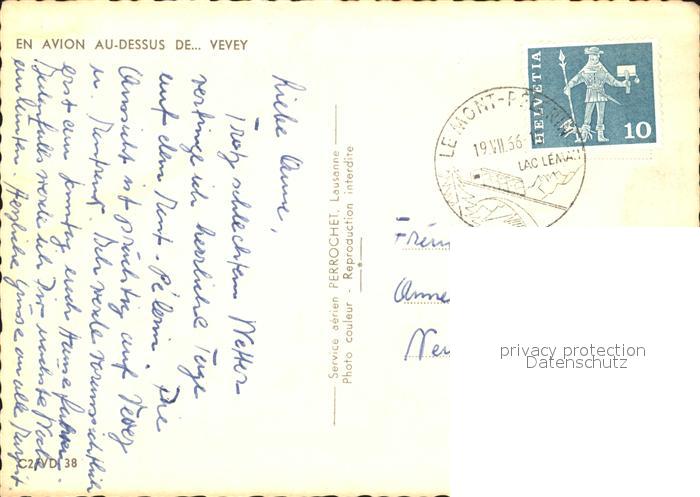 EN AVION AU-DESSUS DE... VEVEY
Liebe Anne,
Trotz schlechtem Wetter
verbringe ich herrliche Tage
auf dem Mont-Pélerin. Die
Aussicht ist prächtig auf Vevey
u. Ich werde voraussichtlich
erst am nach Hause fahren.
Jedenfalls werde ich Dir nächste Woche
Herzliche Grüsse an alle
C2/VD 38
Service aérien PERROCHET, Lausanne
Photo couleur - Reproduction interdite
HELVETIA
10
LE MONT-PÉLERIN
19.VII.66
LAC LÉMAN
Anne
privacy protection
Datenschutz